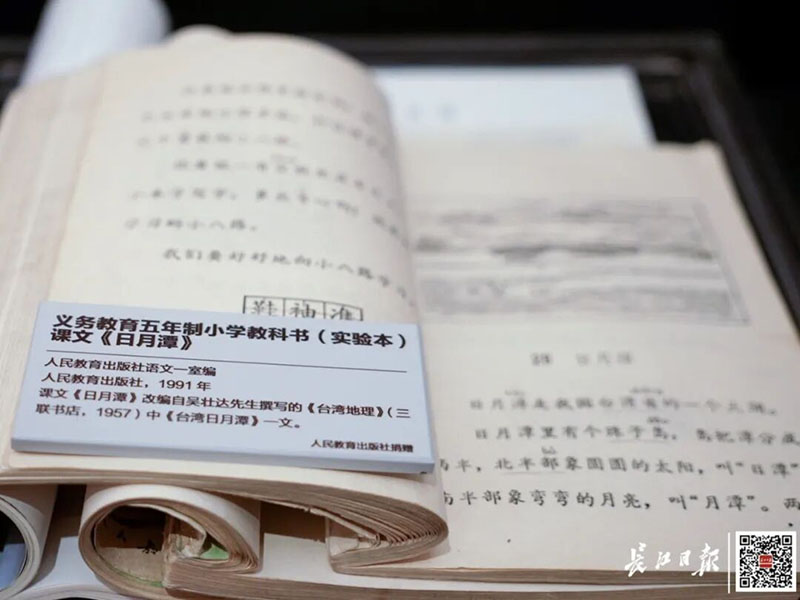 我们要好好地向小八路学习
鞋袖准
义务教育五年制小学教科书（实验本）
课文《日月潭》
人民教育出版社语文一室编
人民教育出版社，1991年
课文《日月潭》改编自吴壮达先生撰写的《台湾地理》（三
联书店，1957）中《台湾日月潭》一文。
人民教育出版社捐赠
日月潭
日月潭是我国台湾省的一个大湖。
日月潭里有个珠子岛，岛把潭分成
两半，北半部象圆圆的太阳，叫“日潭”
南半部象弯弯的月亮，叫“月潭”。两
长江日报